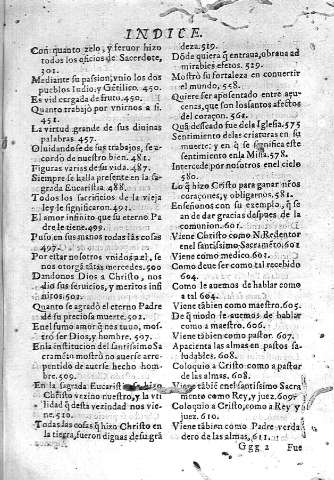 INDICE.
Con quanto zelo, y feruor hizo
todos los oficios de Sacerdote,
301.
Mediante su passion, vnio los dos
pueblos Iudio, y Gētilico. 450.
Es vid cargada de fruto. 450.
Quanto trabajó por vnirnos a si.
451.
La virtud grande de sus diuinas
palabras. 457.
Oluidandose de sus trabajos, se a-
cordo de nuestro bien. 481.
Figuras varias de su vida. 486.
Siempre se halla presente en la sa-
grada Eucaristia. 488.
Todos los sacrificios de la vieja
ley le significaron. 491.
El amor infinito que su eterno Pa
dre le tiene. 499.
Puso en sus manos todas las cosas
497.
Por estar nosotros vnidos a el, se
nos otorgā tātas mercedes. 500
Dandonos Dios a Christo, nos
dio sus seruicios, y meritos infi
niros. 502.
Quanto se agradó el eterno Padre
de su preciosa muerte. 502.
En el sumo amor q̄ nos tuuo, mos-
tró ser Dios, y hombre. 507.
En la institucion del santissimo Sa
cramēto mostrò no auerse arre-
pentido de auerse hecho hom-
bre. 509.
En la sagrada Eucaristia se hizo
Christo vezino nuestro, y la vti
lidad q̄ desta vezindad nos vie-
ne. 510.
Todas las cosas q̄ hizo Christo en
la tierra, fueron dignas de su grā
deza. 519.
Dōde quiera q̄ entraua, obraua ad
mirables efetos. 529.
Mostrò su fortaleza en conuertir
el mundo. 558.
Quiere ser aposentado entre açu-
cenas, que son los santos afectos
del coraçon. 561.
Quā deificado fue de la Iglesia. 575
Sentimiento de las criaturas en su
muerte: y en q̄ se significa este
sentimiento en la Missa. 578.
Intercede por nosotros en el cielo
580.
Lo q̄ hizo Cristo para ganar nr̄os
coraçones, y obligarnos. 581.
Enseñanos con su exemplo, q̄ se
an de dar gracias despues de la
comunion. 601.
Viene Christo como N. Redentor
en el santissimo Sacramēto. 601
Viene como medico. 601.
Como deue ser como tal recebido
604.
Como le auemos de hablar como
a tal 604.
Viene tābien como maestro. 605.
De q̄ modo le auemos de hablar
como a maestro. 606.
Viene tābien como pastor. 607.
Apacienta las almas en pastos sa-
ludables. 608.
Coloquio a Cristo como a pastor
de las almas. 608.
Viene tābiē en el santissimo Sacra
mento como Rey, y juez. 609
Coloquio a Cristo, como a Rey y
juez. 610.
Viene tambien como Padre verda
dero de las almas, 611.
Ggg 2 Fue